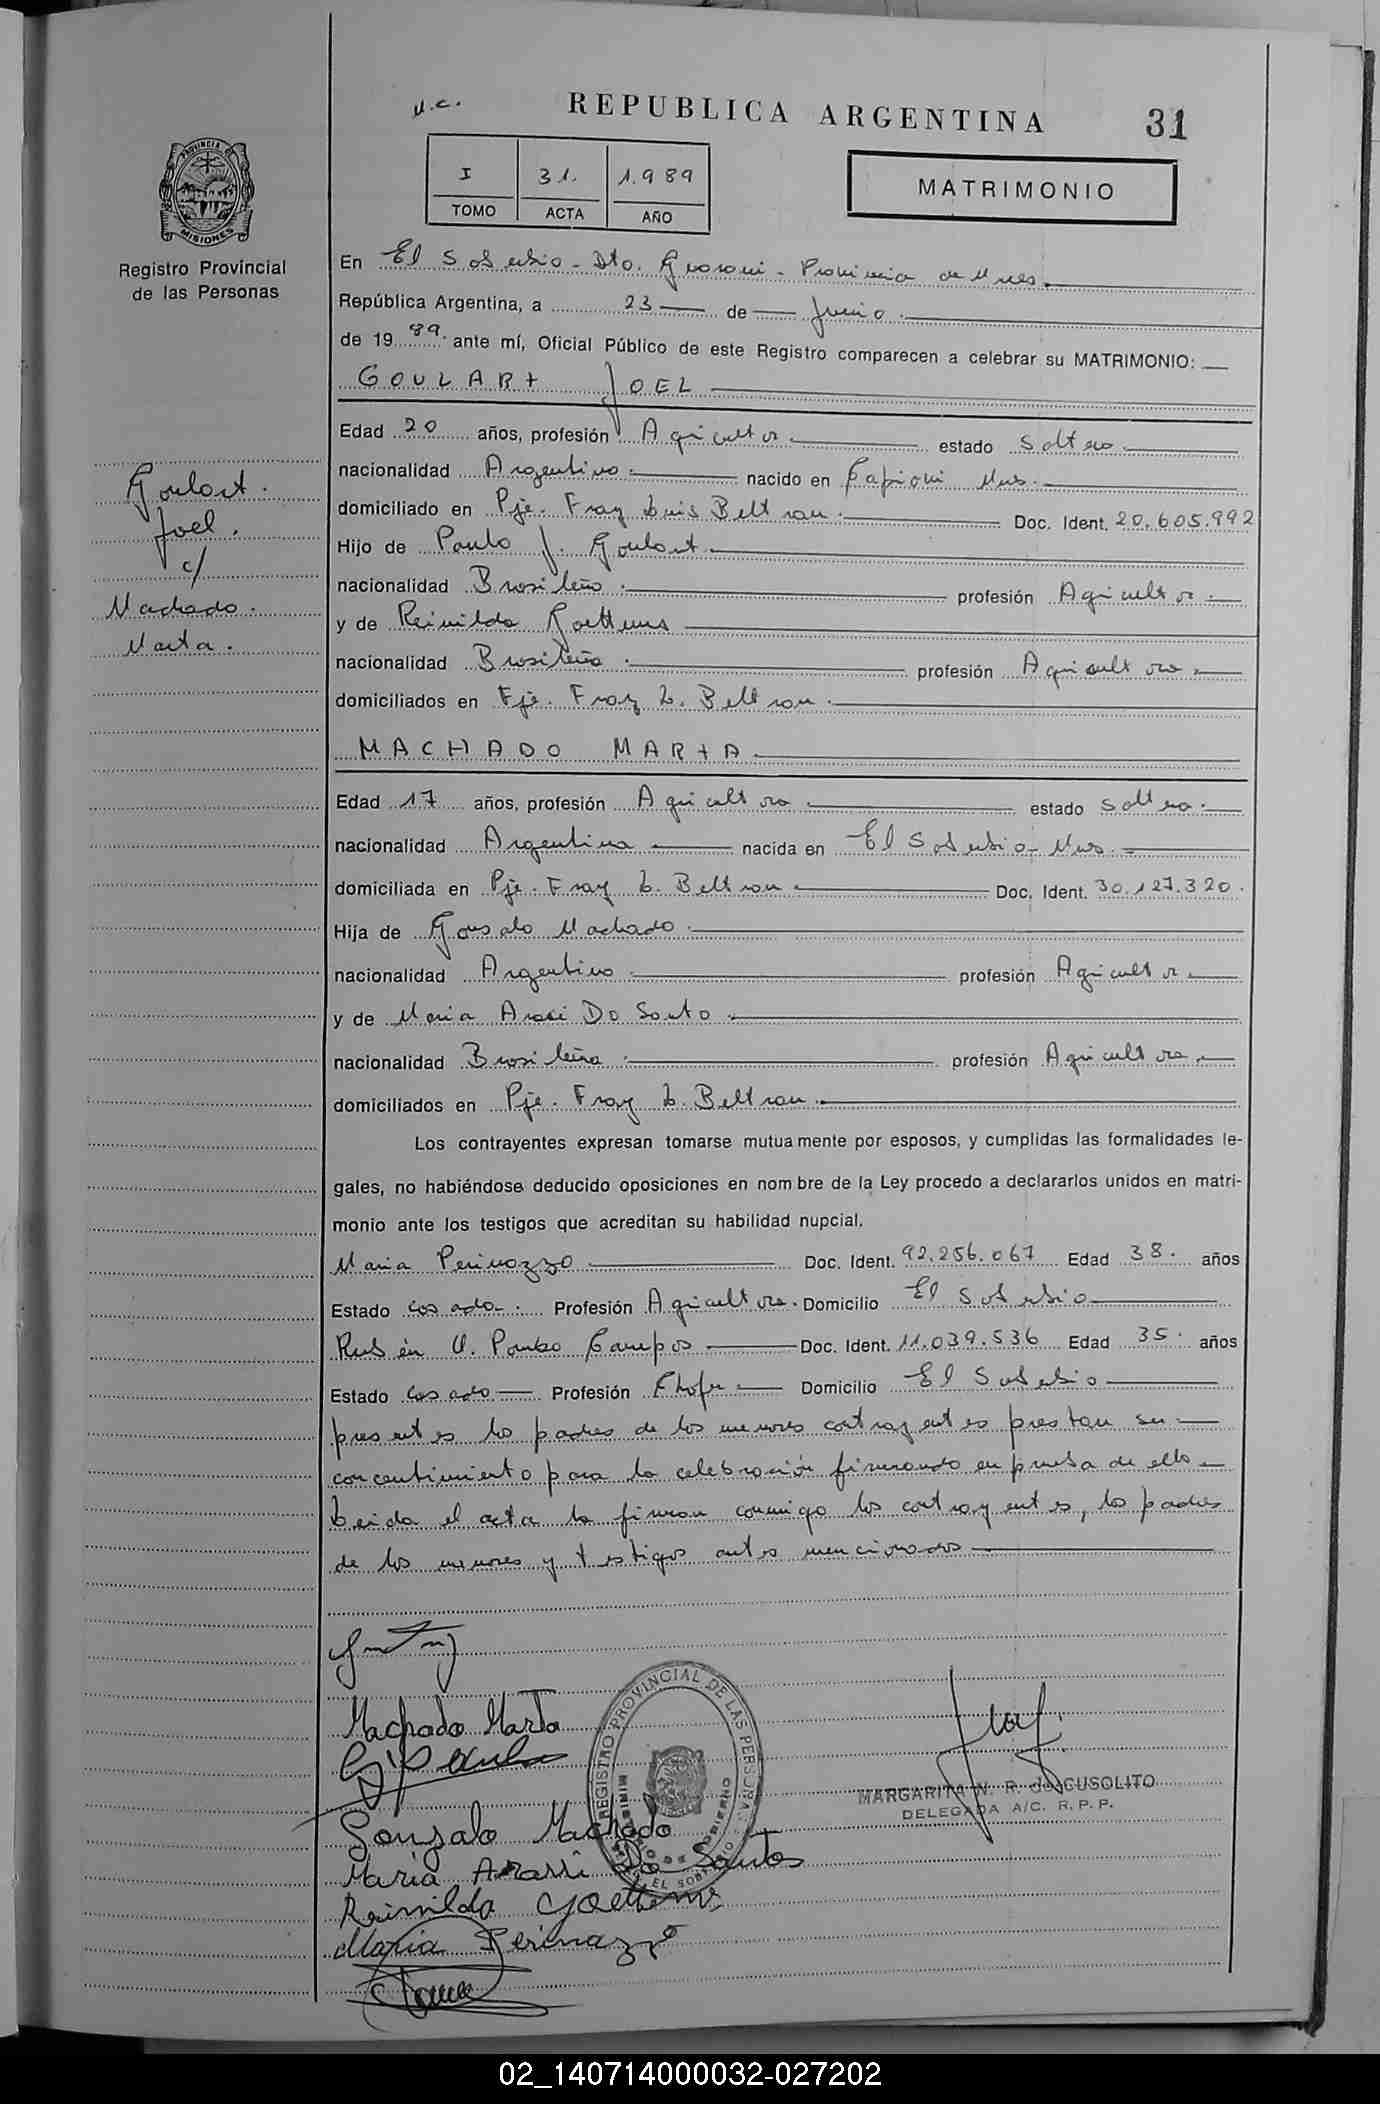 REPUBLICA ARGENTINA
31
I 31. 1.989
TOMO ACTA AÑO
MATRIMONIO
PROVINCIA DE MISIONES
Registro Provincial
de las Personas
En El Soberbio - Dto. Guarani - Provincia de Mnes.
República Argentina, a 23 de Junio.
de 1989. ante mí, Oficial Público de este Registro comparecen a celebrar su MATRIMONIO:
GOULART JOEL
Edad 20 años, profesión Agricultor. estado Soltero.
nacionalidad Argentino. nacido en Mnes.
domiciliado en Pje. Fray Luis Beltran. Doc. Ident. 20.605.992
Hijo de Paulo J. Goulart.
nacionalidad Brasileño. profesión Agricultor.
y de Reinilda Goettems
nacionalidad Brasileña. profesión Agricultora
domiciliados en Pje. Fray L. Beltran.
MACHADO MARTA.
Edad 17 años, profesión Agricultora. estado Soltera.
nacionalidad Argentina nacida en El Soberbio - Mnes.
domiciliada en Pje. Fray L. Beltran Doc. Ident. 30.127.320.
Hija de Gonsalo Machado.
nacionalidad Argentino. profesión Agricultor.
y de Maria Arasi Do Santo.
nacionalidad Brasileña. profesión Agricultora.
domiciliados en Pje. Fray L. Beltran.
Los contrayentes expresan tomarse mutuamente por esposos, y cumplidas las formalidades le-
gales, no habiéndose deducido oposiciones en nombre de la Ley procedo a declararlos unidos en matri-
monio ante los testigos que acreditan su habilidad nupcial.
Maria Perinazzo Doc. Ident. 92.256.067 Edad 38. años
Estado casada. Profesión Agricultora. Domicilio El Soberbio
Rubén Campos Doc. Ident. 11.039.536 Edad 35. años
Estado casado Profesión Chofer Domicilio El Soberbio
presentes los padres de los menores contrayentes prestan su
concentimiento para la celebración firmando en prueba de ello
Leida el acta la firman conmigo los contrayentes, los padres
de los menores y testigos antes mencionados
Goulart.
Joel.
c/
Machado.
Marta.
Machado Marta
Gonzalo Machado
Maria Arassi Do Santos
Reinilda Goettems
Maria Perinazzo
REGISTRO PROVINCIAL DE LAS PERSONAS
MINISTERIO DE GOBIERNO
EL SOBERBIO
MARGARITA N. R. de CUSOLITO
DELEGADA A/C. R.P.P.
02_140714000032-027202